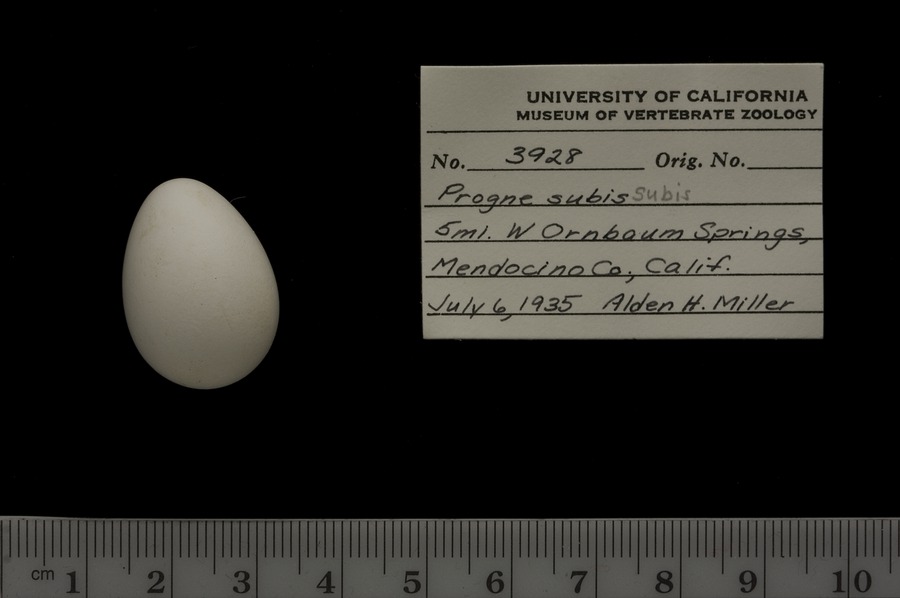 UNIVERSITY OF CALIFORNIA
MUSEUM OF VERTEBRATE ZOOLOGY
No. 3928 Orig. No.
Progne subis subis
5mi. W Ornbaum Springs,
Mendocino Co., Calif.
July 6, 1935 Alden H. Miller
cm 1 2 3 4 5 6 7 8 9 10